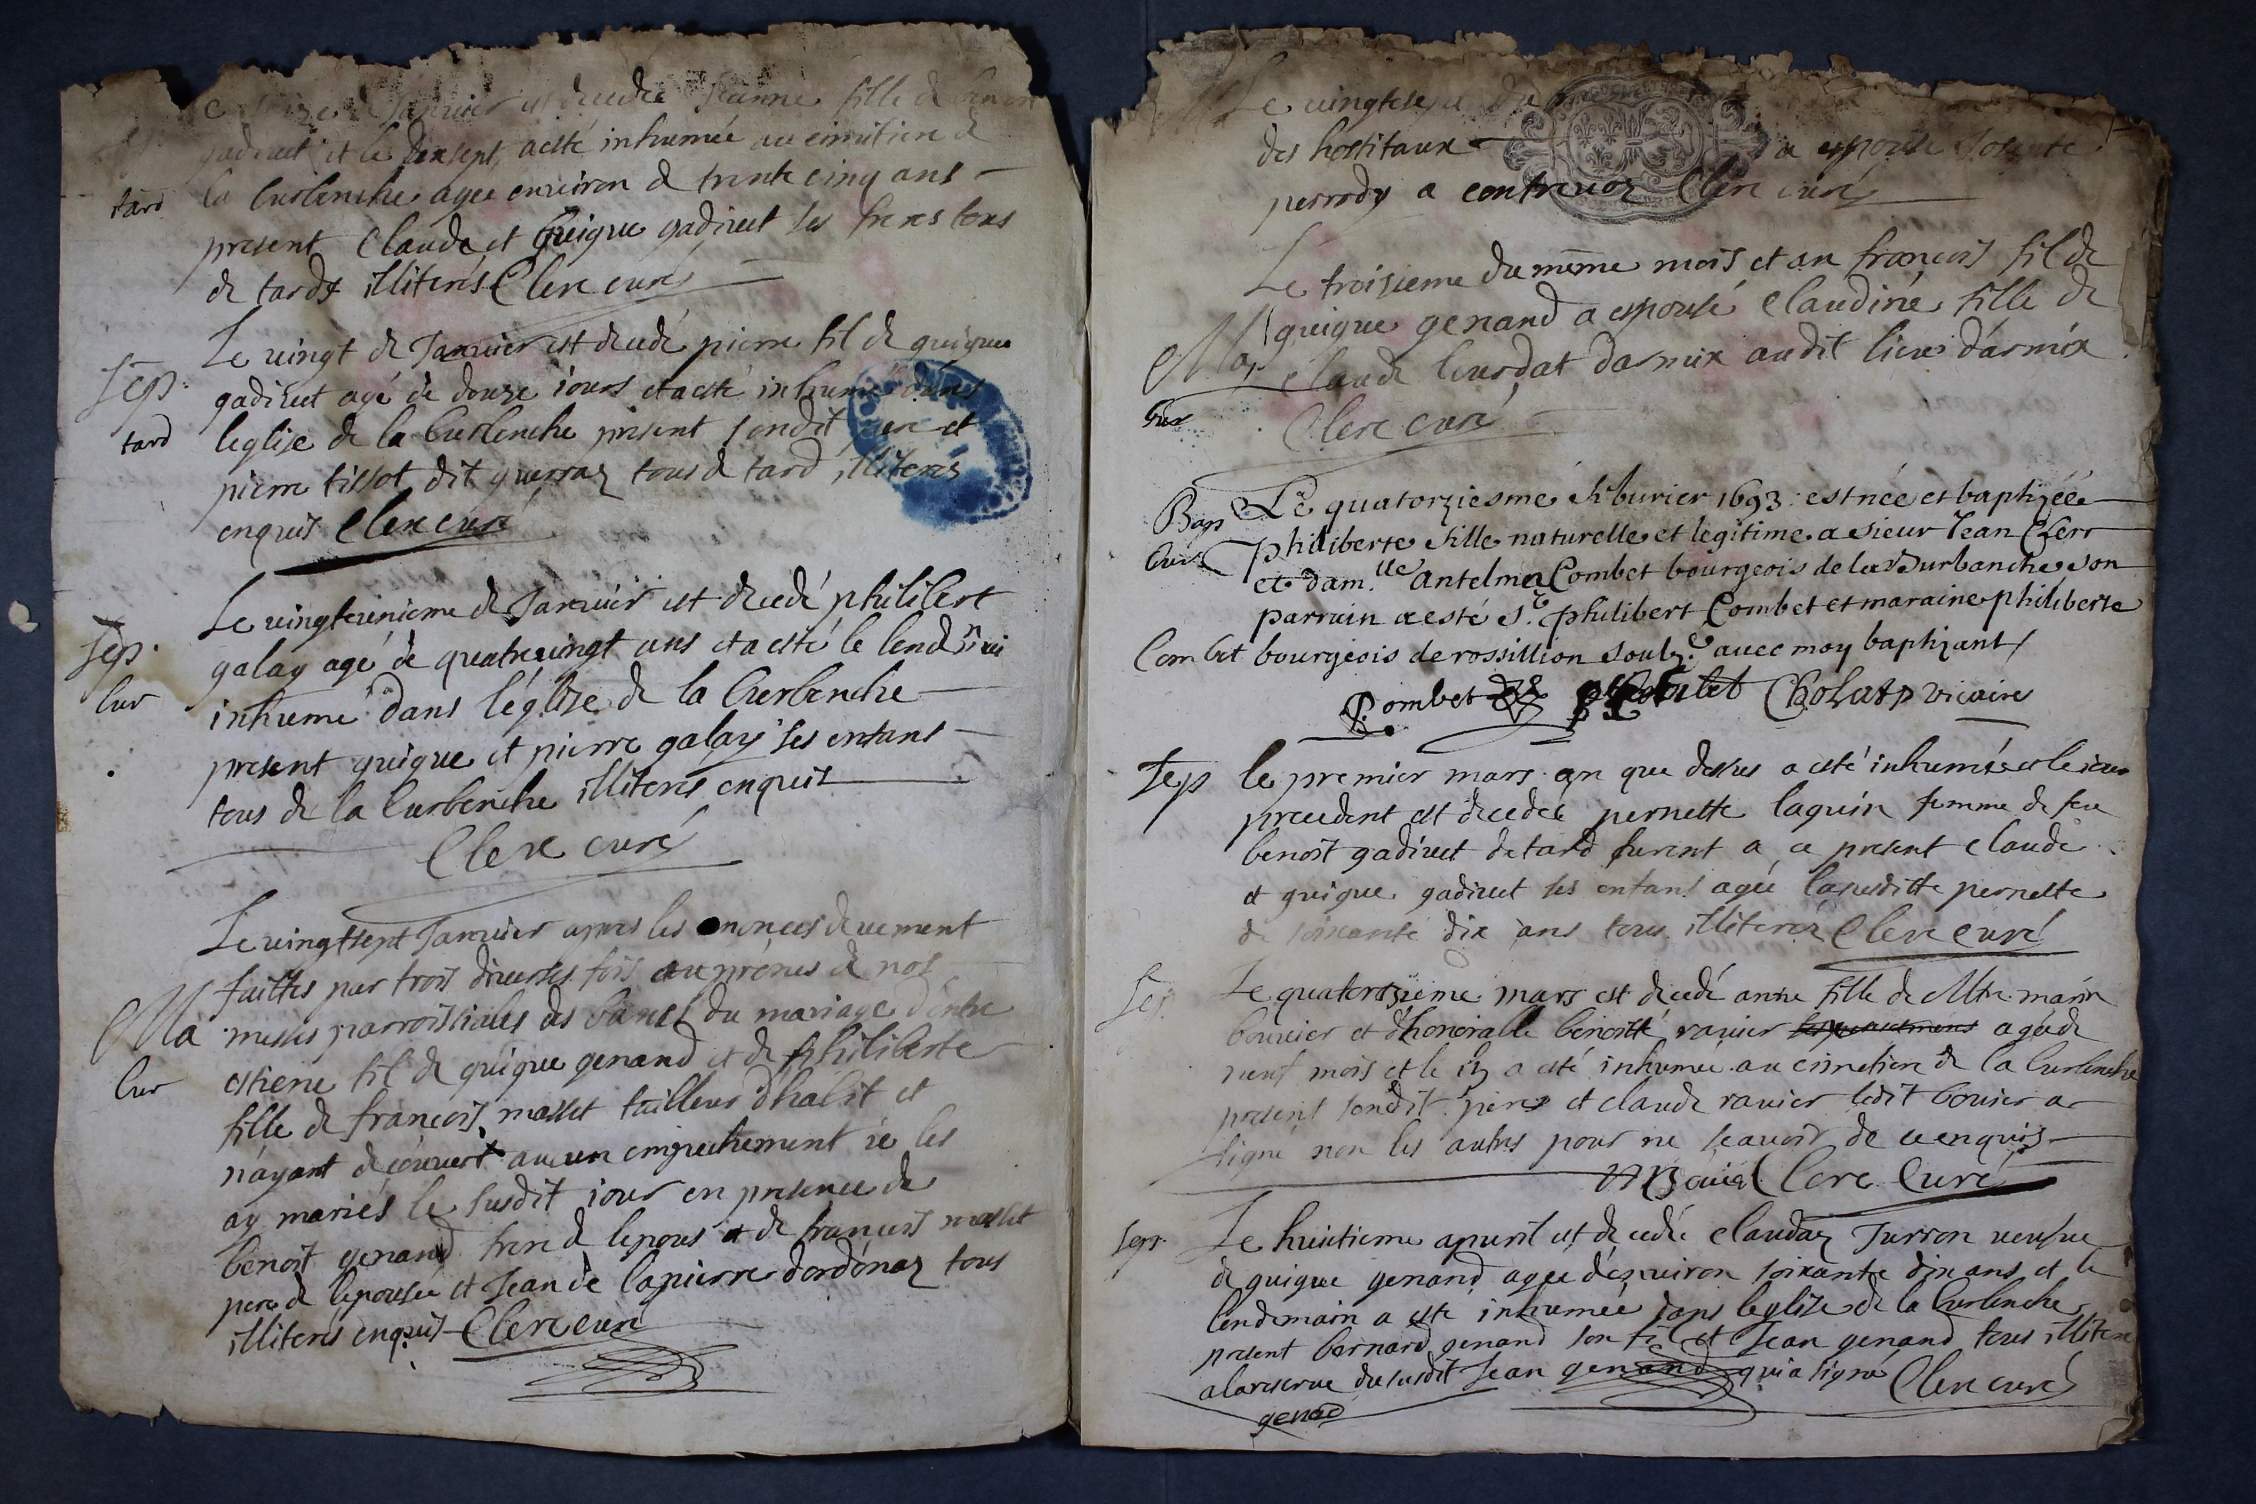 Janvier est decedée Jeanne fille de benoit
gadiuet et le dixsept a esté inhumée au cimitiere de
tard
la burbenche agee environ de trente cinq ans
present Claude et guigue gadiuet ses freres tous
de tard illiterés Clerc curé
Le vingt de Janvier est decedé pierre fil de guigue
Sep.
gadiuet agé de douze iours et a esté inhumé dans
tard
leglise de la burbenche present sondit pere et
pierre tissot dit guerraz tous de tard illiterés
enquis Clerc curé
Le vingteunieme de Janvier est decedé philibert
Sep.
galay agé de quatrevingt ans et a esté le lendemain
bur
inhumé dans l'eglise de la burbenche
present guigue et pierre galay ses enfans
tous de la burbenche illiterés enquis
Clerc curé
Le vingtsept Janvier apres les anonces devement
faittes par trois diverses fois au prones de nos
Ma
messes parroissiales des bancs du mariage d'entre
estiene fil de guigue genand et de philiberte
bur
fille de francois masset tailleur d'habit et
n'ayant decouvert aucun empechement ie les
ay mariés le susdit iour en presence de
benoit genand frere de lepous et de francois masset
pere de lepousée et Jean de lapierre dordonaz tous
illiterés enquis Clerc curé
Le
des hostitaux a espousé
perrody a contrevoz Clerc curé
Le troisieme du même mois et an francois fil de
guigue genand a epousé claudine fille de
Mar
claude bourdat darmix audit lieu d'armix
bur
Clerc curé
Bap Le quatorziesme feburier 1693 est née et baptizéé
bur
philiberte fille naturelle et legitime a sieur Jean Clerc
et dam.lle antelme Combet bourgeois de la Burbanche son
parrain a esté Sr. philibert Combet et maraine philiberte
Combet bourgeois de rossillion soubz. avec moy baptizant
P. Combet Cholat vicaire
Sep le premier mars an que dessus a esté inhumée et le iour
precedent est decedeé pernette laguin femme de feu
benoit gadiuet de tard furent a ce present claude
et guigue gadiuet ses enfans agée la susditte pernette
de soixante dix ans tous illiterés Clerc curé
Sep.
Le quatorzieme mars est decedé anne fille de Mtre marin
bouvier et d'honorable benoitte ravier agéede
neuf mois et le 15 a esté inhumée au cimetiere de la burbenche
present sondit pere et claude ravier ledit bouvier a
signé non les autres pour ne scavoir de ce enquis
Clerc Curé
Sep. Le huitieme apuril est decedée claudaz Jurron veufue
de guigue genand agee denviron soixante dix ans et le
lendemain a este inhumée dans leglise de la burbenche
present bernard genand son fil et Jean genand tous illiteré
a lareserve du susdit Jean genand qui a signé Clerc curé
genad